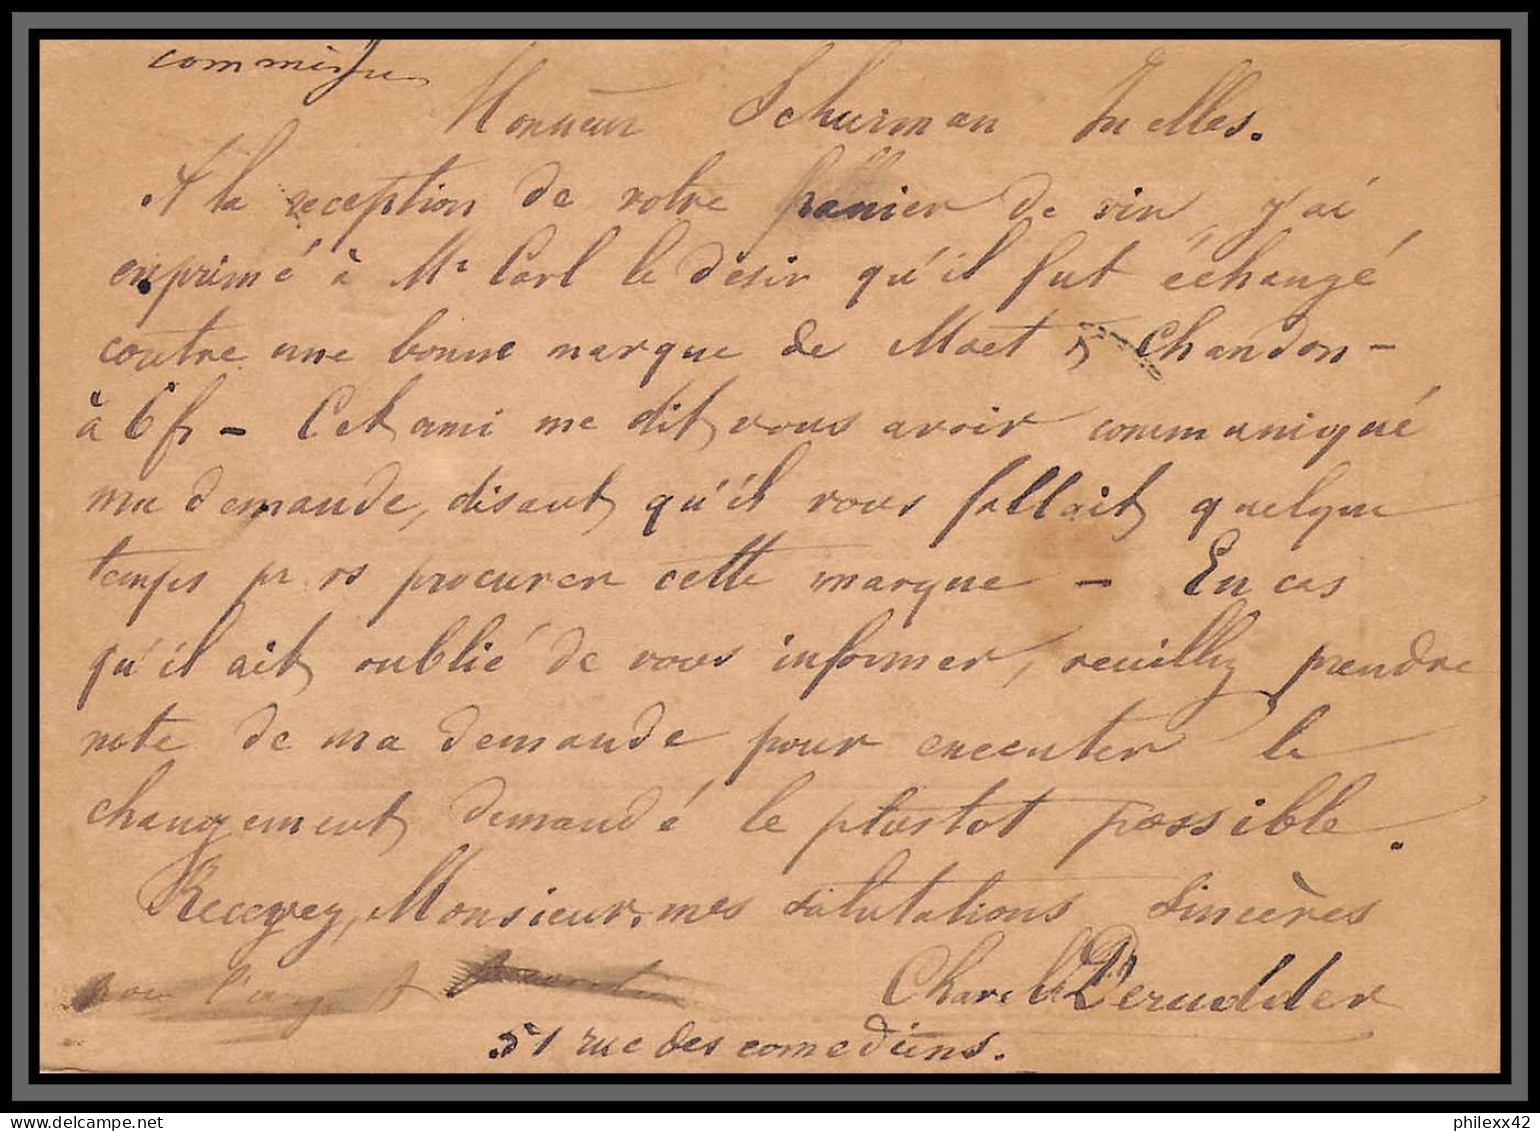 Monsieur Schurman Ixelles.
A la reception de votre panier de vin, j'ai
exprimé à Mr Carl le desir qu'il fut échangé
contre une bonne marque de Moet & Chandon -
à 6 fr - Cet ami me dit vous avoir communiqué
ma demande, disant qu'il vous fallait quelque
temps pr vs procurer cette marque - En cas
qu'il ait oublié de vous informer, veuillez prendre
note de ma demande pour executer le
changement demandé le plustot possible.
Recevez, Monsieur, mes salutations sincères
Charel Derudder
51 rue des comediens.
philexx42